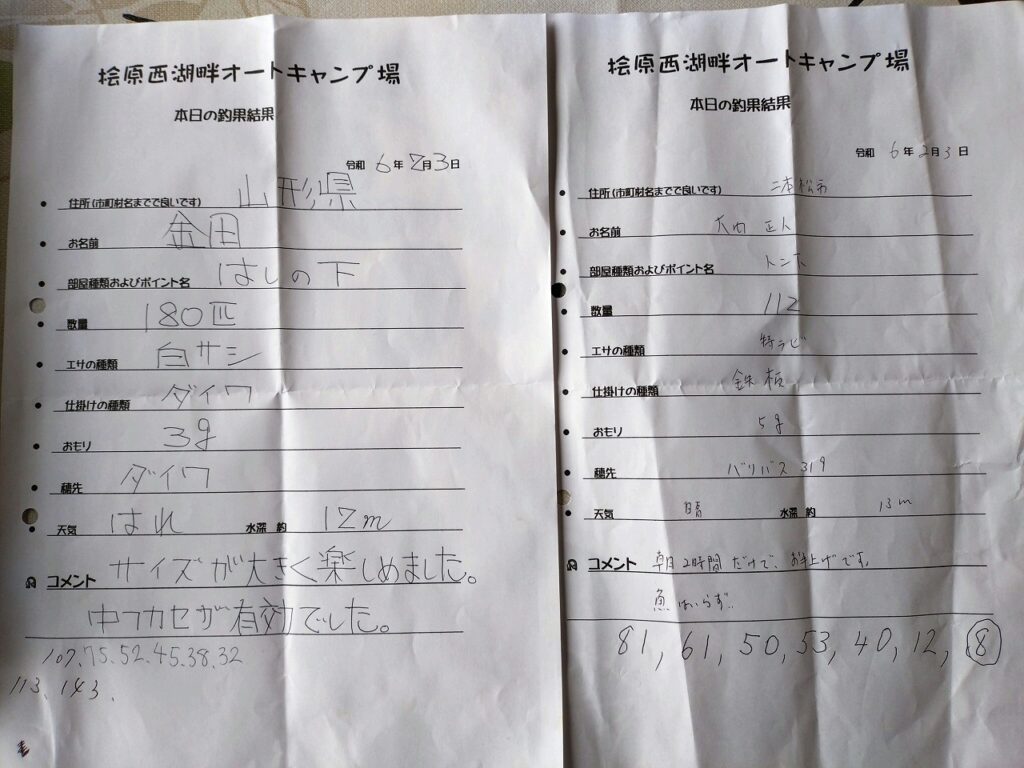 桧原西湖畔オートキャンプ場
本日の釣果結果
令和 6年2月3日
住所(市町村名までで良いです) 山形県
お名前 金田
部屋種類およびポイント名 はしの下
数量 180匹
エサの種類 白サシ
仕掛けの種類 ダイワ
おもり 3g
穂先 ダイワ
天気 はれ 水深 約 12m
コメント サイズが大きく楽しめました。
中フカセが有効でした。
109.75.52.45.38.32
113.143.
桧原西湖畔オートキャンプ場
本日の釣果結果
令和 6年2月3日
住所(市町村名までで良いです) 二本松市
お名前 大内 正人
部屋種類およびポイント名
数量 112
エサの種類 特ラビ
仕掛けの種類
おもり 5g
穂先 バリバス 319
天気 晴 水深 約 13m
コメント 朝2時間だけで、お手上げです。
魚はいらず…
81, 61, 50, 53, 40, 12, 8